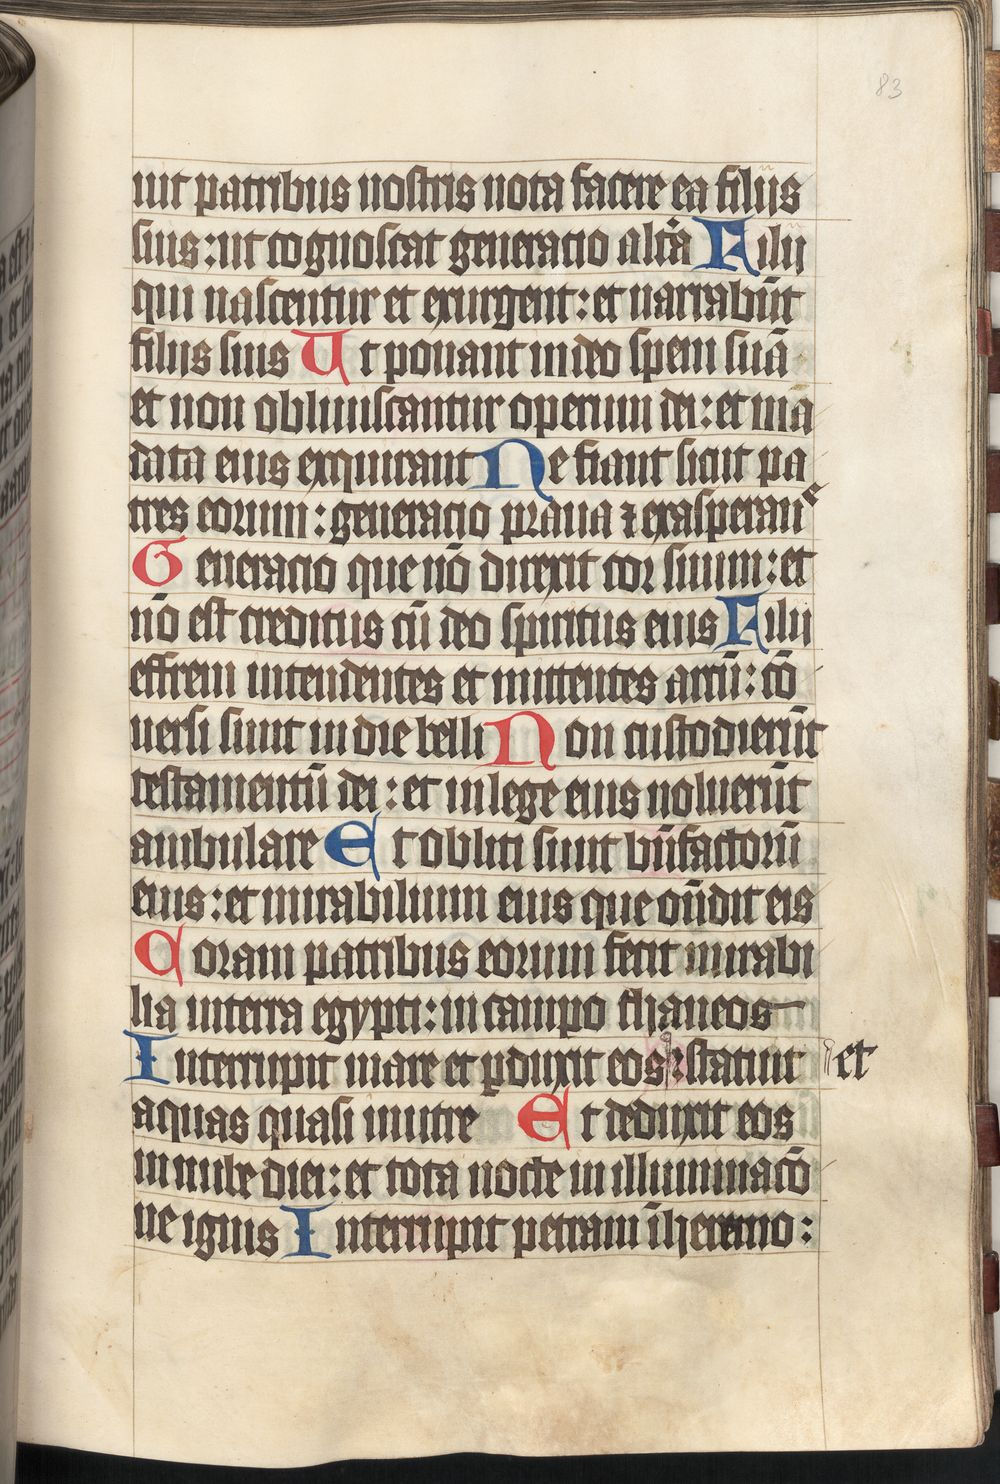 83
uit patribus nostris nota facere ea filijs
suis: ut cognoscat generacio alt̄a Filii
qui nascentur et exurgent: et narrabūt
filijs suis Ut ponant in deo spem suā
et non obliuiscantur operum dei: et mā
data eius exquirant Ne fiant sicut pa
tres eorum: generacio praua ⁊ exasperans
Generacio que nō direxit cor suum: et
nō est creditus cū deo spiritus eius Filii
effrem intendentes et mittentes arcū: cō
uersi sunt in die belli Non custodierūt
testamentū dei: et in lege eius noluerūt
ambulare Et obliti sunt bn̄factorū
eius: et mirabilium eius que on̄dit eis
Coram patribus eorum fecit mirabi
lia in terra egypti: in campo thaneos
Interrupit mare et ꝑduxit eos: statuit et
aquas quasi in utre Et deduxit eos
in nube diei: et tota nocte in illuminacō
ne ignis Interrupit petram ī heremo: